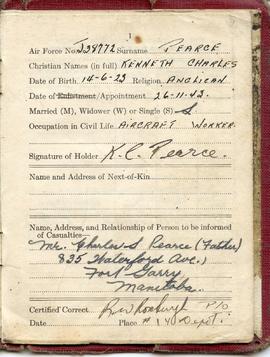 1
Air Force No. J38772 Surname PEARCE
Christian Names (in full) KENNETH CHARLES
Date of Birth 14-6-23 Religion ANGLICAN
Date of Enlistment/Appointment 26-11-43.
Married (M), Widower (W) or Single (S) S
Occupation in Civil Life AIRCRAFT WORKER.
Signature of Holder K.C. Pearce.
Name and Address of Next-of-Kin
Name, Address, and Relationship of Person to be informed
of Casualties—
Mr. Charles Pearce (Father)
835 Waterford Ave.)
Fort Garry
Manitoba.
Certified Correct P/O
Date Place # 1 "Y" Depot.